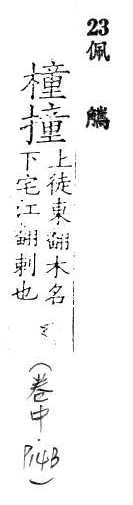 23佩觿
橦撞
上徒東翻木名
下宅江翻刺也
(卷中 P14B)